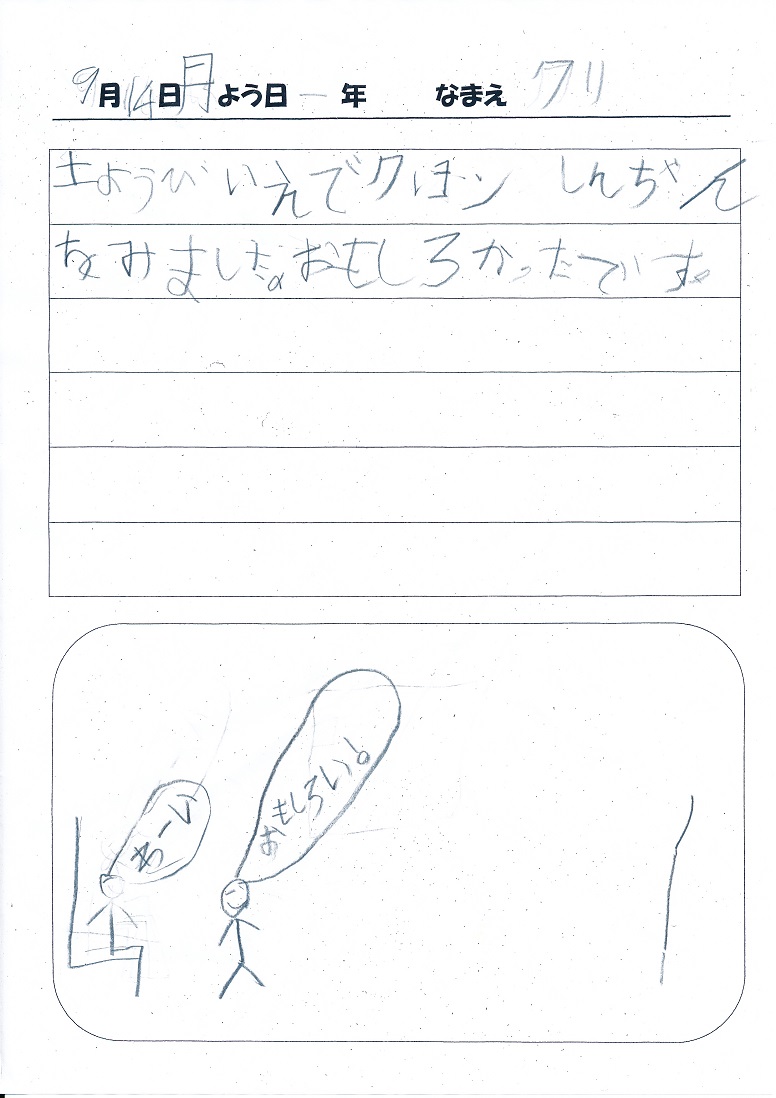 9月14日月よう日 一年 なまえ クリ
土ようび いえでクヨン しんちゃん
をみました。おもしろかったです。
わーい
おもしろい!